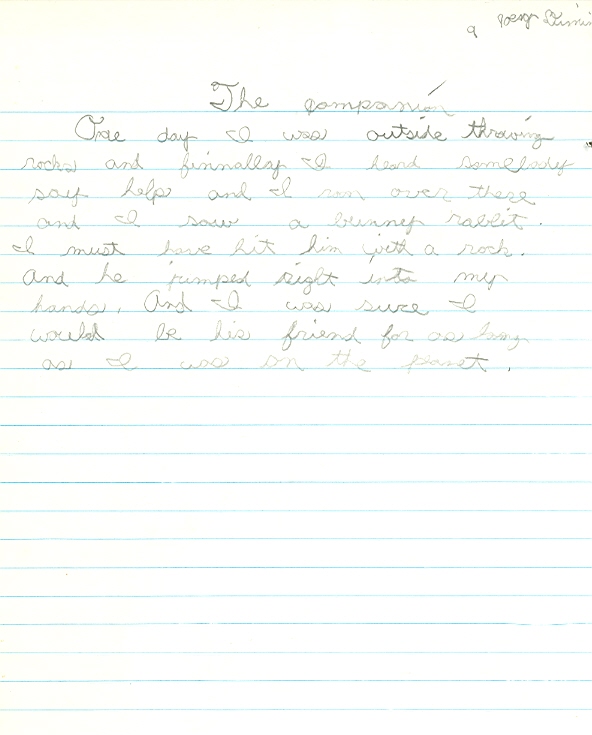 9
The companion
One day I was outside throwing
rocks and finnally I heard somebody
say help and I ran over there
and I saw a bunney rabbit.
I must have hit him with a rock.
And he jumped right into my
hands. And I was sure I
would be his friend for as long
as I was on the planet.